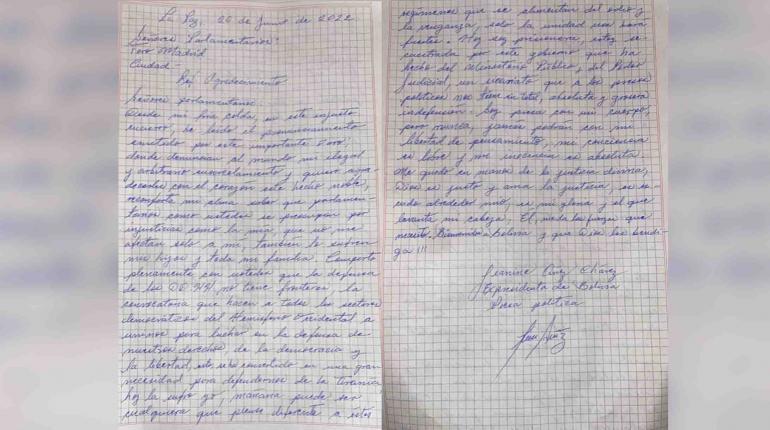 La Paz, 20 de Junio de 2022
Señores Parlamentarios:
Foro Madrid
Ciudad.-
Ref: Agradecimiento
Señores parlamentarios:
Desde mi fría celda, en este injusto
encierro, he leído el pronunciamiento
emitido por este importante Foro
donde denuncian al mundo mi ilegal
y arbitrario encarcelamiento y quiero agra-
decerles con el corazón este hecho noble,
reconforta mi alma saber que parlamen-
tarios como ustedes se preocupan por
injusticias como la mía, que no me
afectan solo a mi, también lo sufren
mis hijos y toda mi familia. Comparto
plenamente con ustedes que la defensa
de los DD.HH, no tiene fronteras, la
convocatoria que hacen a todos los sectores
democráticos del Hemisferio Occidental a
unirnos para luchar en la defensa de
nuestros derechos, de la democracia y
la libertad, esto se ha convertido en una gran
necesidad para defendernos de la tiranía,
hoy la sufro yo, mañana puede ser
cualquiera que piense diferente a estos
regímenes que se alimentan del odio y
la venganza, solo la unidad nos hará
fuertes. Hoy soy prisionera, estoy se-
cuestrada por este gobierno que ha
hecho del Ministerio Público, del Poder
Judicial, un sicariato que a los presos
políticos nos tiene en total, absoluta y grosera
indefensión. Soy presa con mi cuerpo,
pero nunca, jamás podrán con mi
libertad de pensamiento, mi conciencia
es libre y mi inocencia es absoluta.
Me quedo en manos de la justicia divina,
Dios es justo y ama la justicia, es es-
cudo alrededor mío, es mi gloria y el que
levanta mi cabeza. El, me da las fuerzas que
necesito. Bienvenidos a Bolivia y que Dios los bendi-
ga!!!
Jeanine Añez Chávez
Expresidenta de Bolivia
Presa política